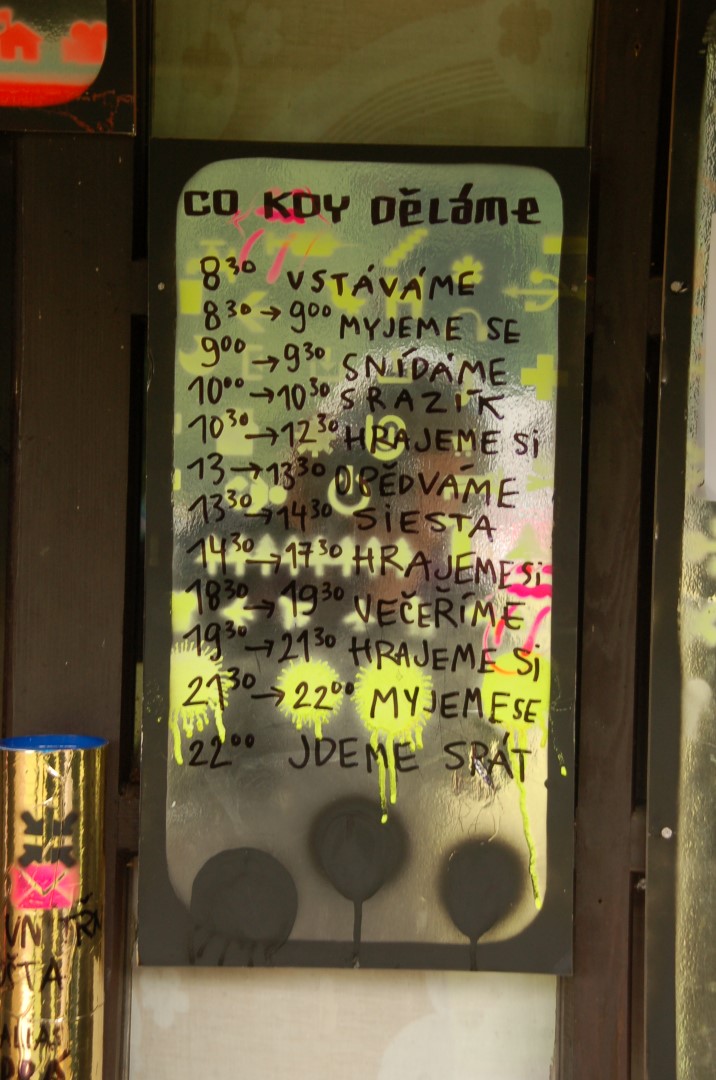 CO KDY DĚLÁME
8³⁰ VSTÁVÁME
8³⁰ → 9⁰⁰ MYJEME SE
9⁰⁰ → 9³⁰ SNÍDÁME
10⁰⁰ → 10³⁰ SRAZÍK
10³⁰ → 12³⁰ HRAJEME Si
13 → 13³⁰ OBĚDVÁME
13³⁰ → 14³⁰ SiESTA
14³⁰ → 17³⁰ HRAJEME Si
18³⁰ → 19³⁰ VEČEŘÍME
19³⁰ → 21³⁰ HRAJEME Si
21³⁰ → 22⁰⁰ MYJEME SE
22⁰⁰ JDEME SPÁT
ALIAS